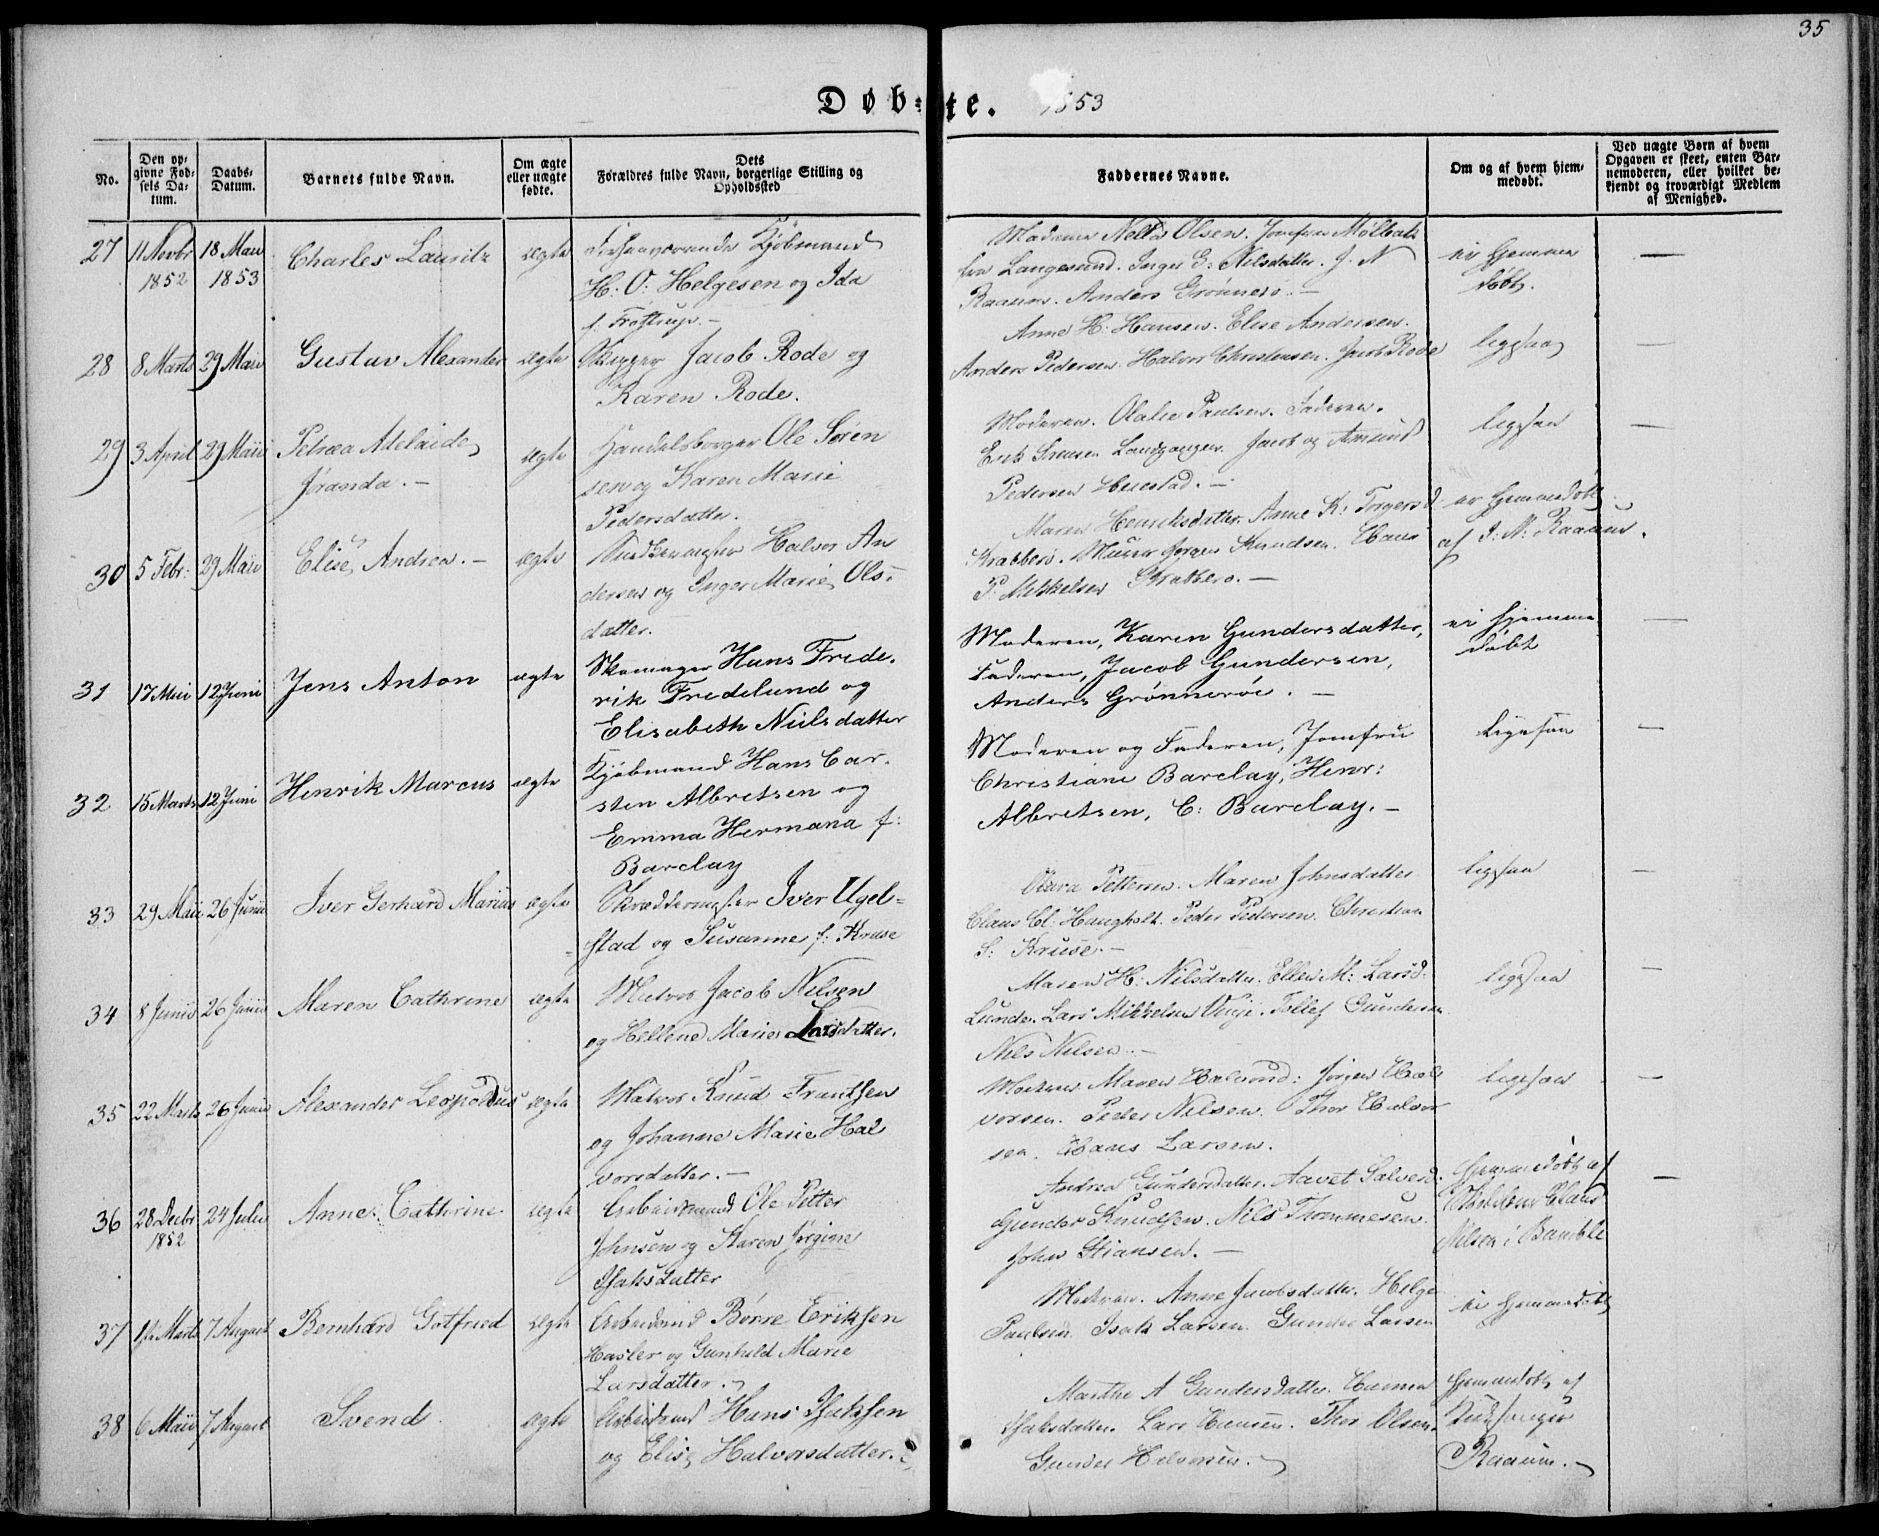 35
Døbte. 1853
No.
Den opgivne Fødsels Datum.
Daabs-Datum.
Barnets fulde Navn.
Om ægte eller uægte fødte.
Dets Forældres fulde Navn, borgerlige Stilling og Opholdssted
Faddernes Navne.
Om og af hvem hjemmedøbt.
Ved uægte Børn af hvem Opgaven er skeet, enten Barnemoderen, eller hvilket bekjendt og troværdigt Medlem af Menighed.
27 11 Novbr 1852 18 Maii 1853 Charles Lauritz ægte
Kjøbmand
H: O: Helgesen og Ida
f: Trøftrup. –
Madame Olsen. Jomfru Mølbach
fra Langesund. Inger G: Nilsdatter. J. N
Raaum. Anders Grønnerø. –
ei hjemme
døbt.
28 8 Marts 29 Maii Gustav Alexander ægte
Skipper Jacob Rode og
Karen Rode.
Anne H: Hansen. Elise Andersen.
Anders Pedersen. Halvor Christensen. Jacob Rode
ligesaa
29 3 April 29 Maii Petrea Adelaide
Jøranda. –
ægte
Handelsborger Ole Søren
sen og Karen Marie
Pedersdatter.
Moderen. Olalie Paulsen. Faderen.
Erik Langangen. Jacob og Amund
Pedersen
ligesaa
30 5 Febr: 29 Maii Elise Andrea. – ægte
Halvor An
dersen og Inger Marie Ols-
datter.
Maren Henriksdatter. Anne K: Torgersd
Krabberø. Murer Jørgen Knudsen. Hans
P. Mikkelsen Krabberø. –
er hjemmedøbt
af J: N: Raaum.
31 17 Mai 12 Juni Jens Anton ægte
Skomager Hans Frede.
rik Fredelund og
Elisabeth Nielsdatter
Moderen, Karen Gundersdatter,
Faderen, Jacob Gundersen,
Anders Grønnerøe. –
ei hjemme
døbt
32 15 Marts 12 Juni Henrik Marcus ægte
Kjøbmand Hans Car.
sten Albretsen og
Emma Hermana f:
Barclay
Moderen og Faderen, Jomfru
Christiane Barclay, Henr:
Albretsen, C: Barclay. –
Ligesaa
33 29 Maii 26 Junii Iver Gerhard Marius ægte
Skræddermester Iver Ugel=
stad og Susanne f: Kruse
Maren Johnsdatter
Claus Cl: Haugholt. Peder Pedersen. Christian
S: Kruse. –
ligesaa
34 8 Junii 26 Junii Maren Cathrine ægte
Matros Jacob Nilsen
og Hellene Marie Larsdatter.
Maren H: Nilsdatter. Ellen M: Larsd:
Lunde. Lars Mikkelsen Vinje. Tollef Gundersen
Nils Nilsen. –
ligesaa
35 22 Marts 26 Junii Alexander Leopoldus ægte
Matros Knud Frantsen
og Johanne Marie Hal
vorsdatter. –
Moderen. Maren Halvord: Jørgen Hal
vorsen. Peder Nilsen. Thor Halvor
sen. Hans Larsen.
ligesaa
36 28 Decbr 1852 24 Julii Anne Cathrine ægte
Arbeidsmand Ole Petter
Johnsen og Karen Jørgine
Isaksdatter
Andrea Gundersdatter. Aavet Salvesd.
Gunder Knudsen. Nils Thommesen.
John Stiansen. –
hjemmedøbt af
Skolelærer Claus
Nilsen i Bamble
37 Marts 7 August Bernhard Gotfried ægte
Arbeidsmd Børre Eriksen
Hasler og Gunhild Marie
Larsdatter.
Moderen. Anne Jacobsdatter. Helge
Paulsen. Isak Larsen. Gunder Larsen
ei hjemmedøbt
38 6 Maii 7 August Svend ægte
Arbeidsmd Hans Isaksen
og Elise Halvorsdatter.
Marthe A Gundersdatter.
Isaksdatter. Lars Hansen. Thor Olsen.
Gunder Halvorsen.
hjemmedøbt af
Kirkesanger
Raaum.